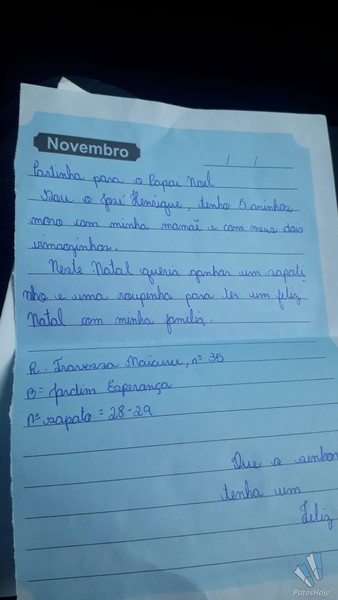 Novembro
/ /
Cartinha para o Papai Noel
Sou o José Henrique, tenho 5 aninhos
moro com minha mamãe e com meus dois
irmãozinhos.
Neste Natal queria ganhar um sapati
nho e uma roupinha para ter um feliz
Natal com minha família.
R. Travessa Maicuru, nº 35
B= Jardim Esperança
nº sapato = 28-29
Que o senhor
tenha um
Feliz
PatosHoje